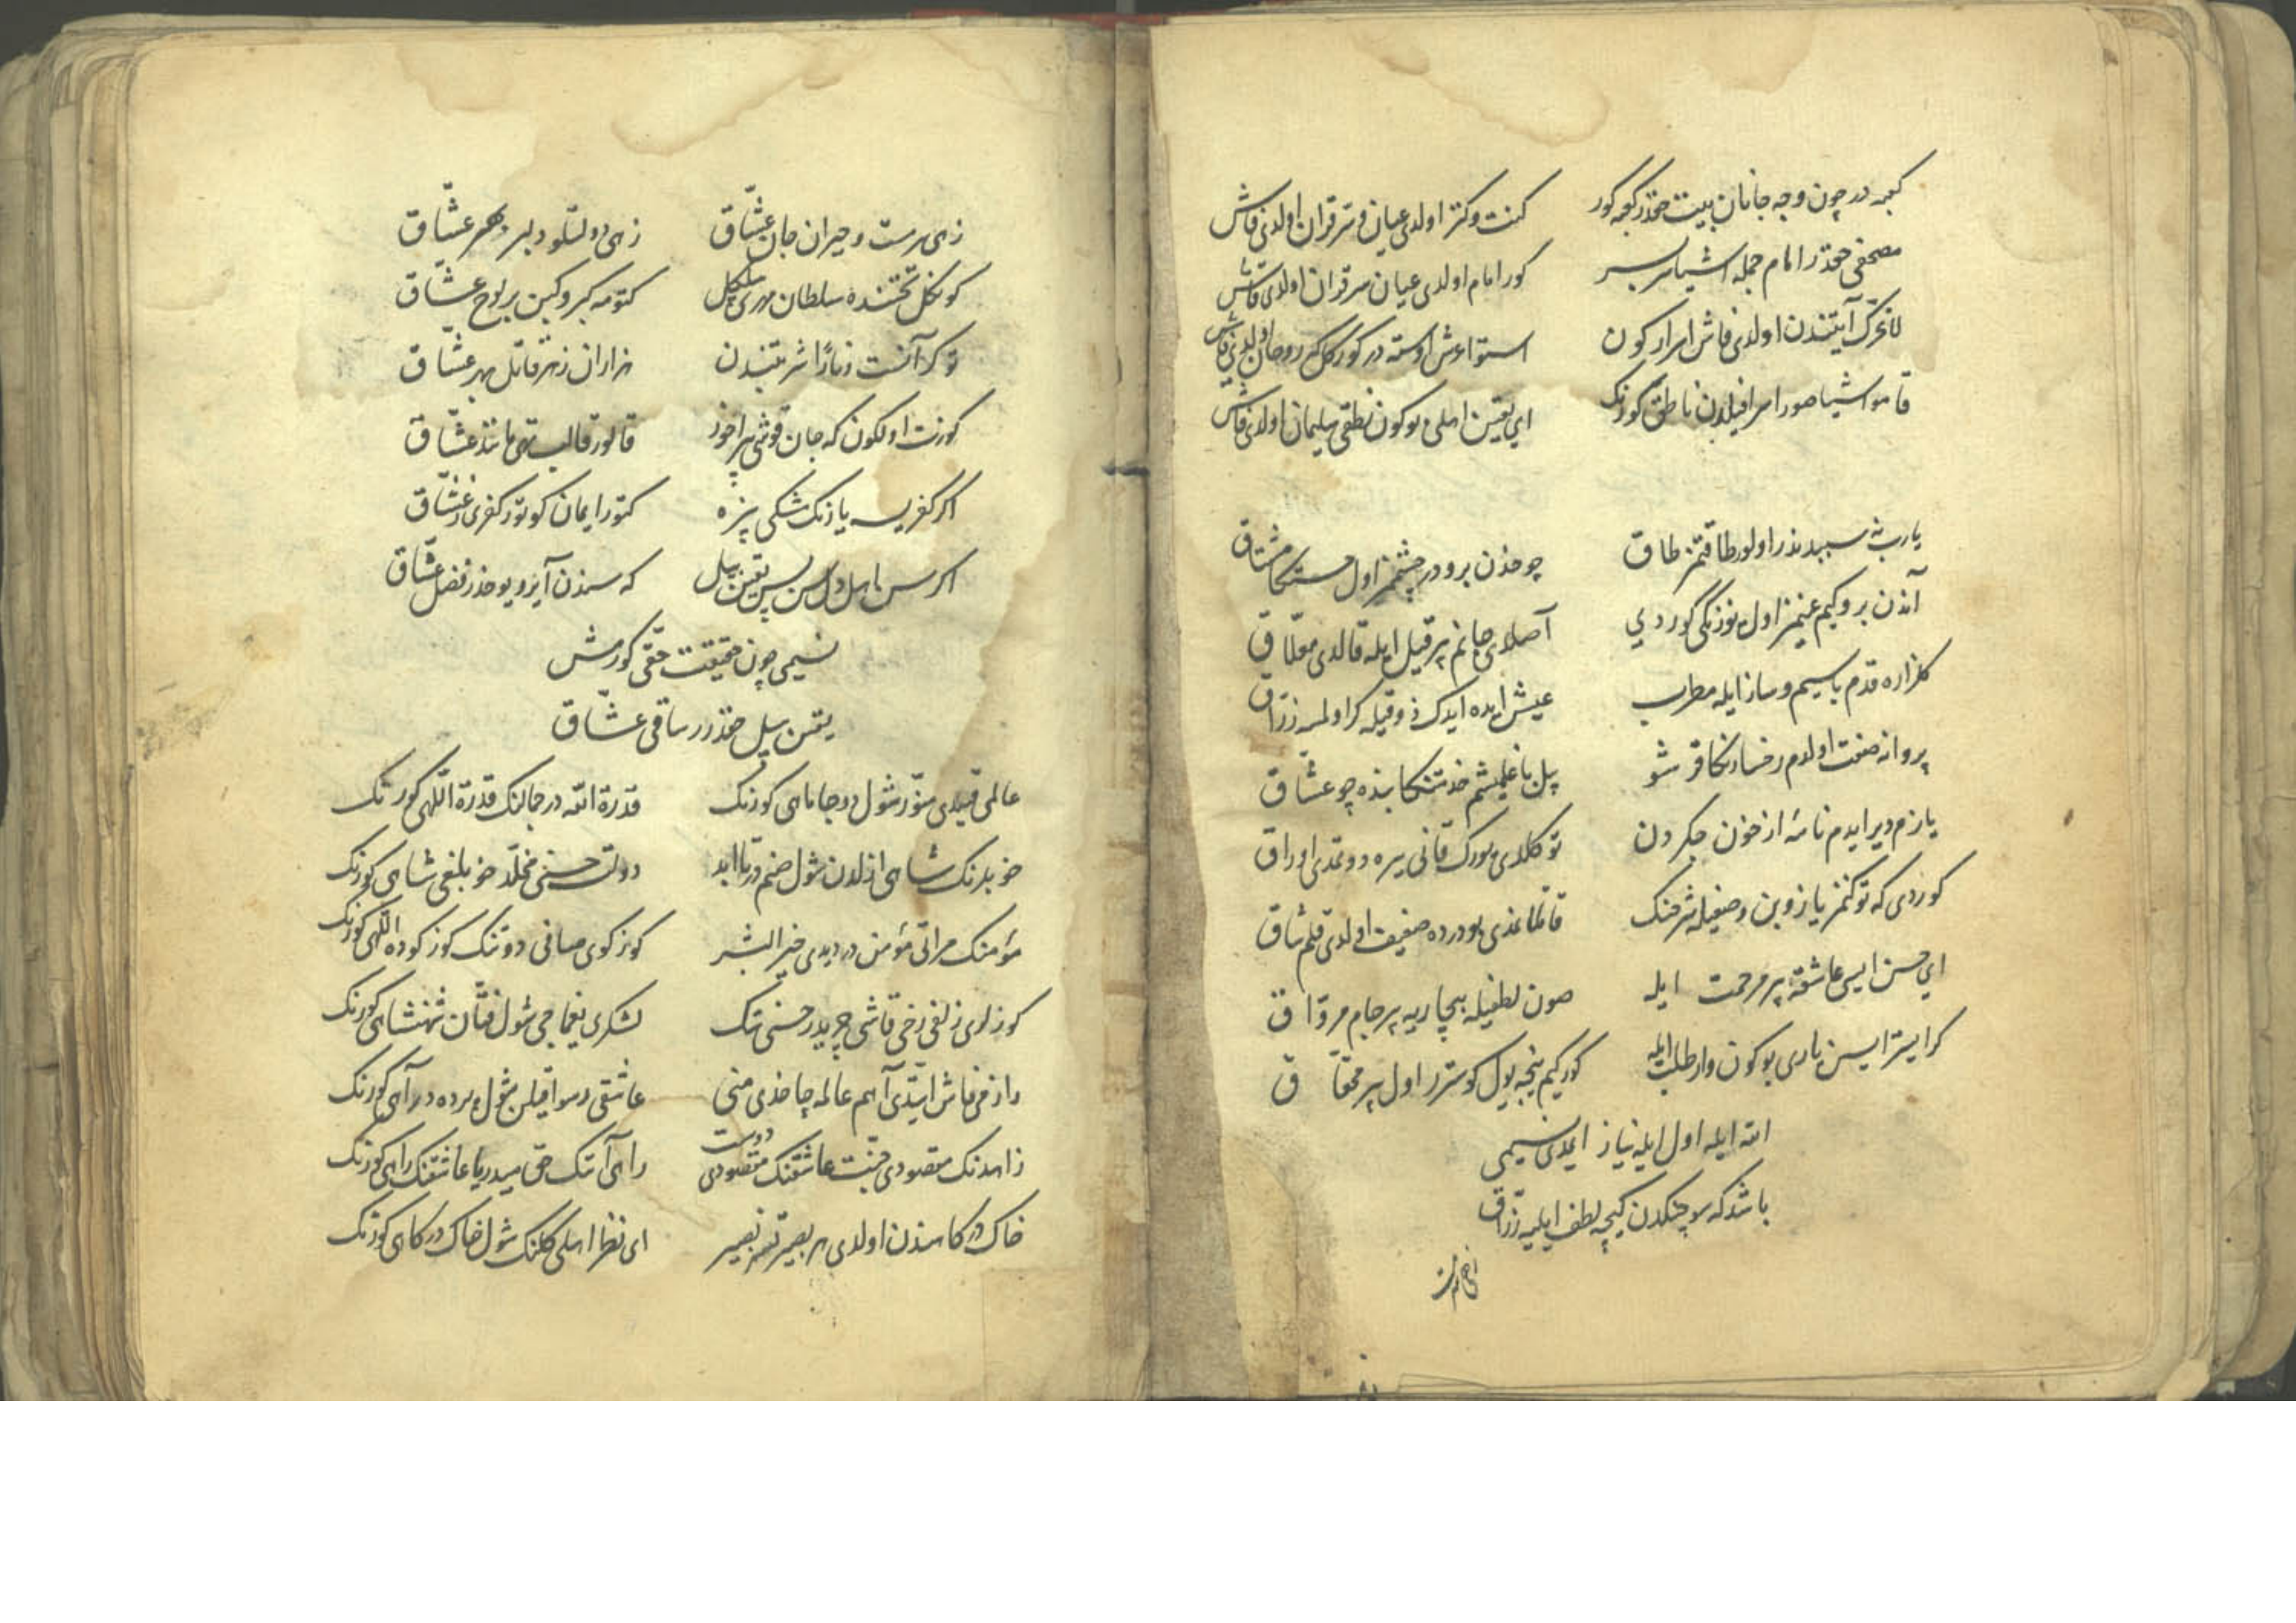 كعبه در چون وجه جانان بيت حقدر كعبه كور
كنت و كنز اولدی عيان و سر قران اولدی فاش
مصحفی حقدر امام جمله اشيا سر بسر
كور امام اولدی عيان سر قران اولدی فاش
لا تحرك آيتندن اولدی فاش اسرار كون
استوا عرش اوسته در كور كل كه روحان اولدی فاش
قامو اشيا صور اسرافيلدن ناطق كورنك
ای يقين اهلی بو كون نطق سليمان اولدی فاش
يارب نه سببدندر اولور طاقتمز طاق
چوخدن برودر چشممز اول حسنكا مشتاق
آندن برو كيم عينمز اول يوزنكی كوردی
آصلدی جانم بر قيل ايله قالدی معلاق
كلزاره قدم باسيم و ساز ايله مطرب
عيش ايده ايدك ذوقيله كر اولسه رزاق
پروانه صفت اولدم رخسارنكا قرشو
بل باغلمشم خدمتنكا بنده چو عشاق
يازم دير ايدم نامهٔ از خون جكردن
توكلدی يورك قانی يره دوتمدی اوراق
كوردی كه توكنمز يازوبن وصفيله شرحنك
قانلا غدی بو درده ضعيف اولدی قلم شاق
ای حسن ايسی عاشقه بر مرحمت ايله
صون لطفيله بيچاريه بر جام مرواق
كر ايستر ايسن ياری بو كون وار طلب ايله
كور كيم نيجه يول كوسترر اول بر محقاق
الله ايله اول ايله نياز ايمدی نسيمی
باشد كه سوچنكدن كيچه لطف ايليه رزاق
زهی سرمست و حيران جان عشاق
زهی دولتلو دلبر عشاق
كونكل تختنده سلطان مهری
كتومه كبر و كين بر لوح عشاق
هزاران زهر قاتل بهر عشاق
كورنت اولكون كه جان قوشی
قالور قالب تهی مانند عشاق
اكر كفريسه يارنك مشكی بزه
كتور ايمان كوتور كفری ز عشاق
اكر سن اهل دل سن بس يقين بيل
كه سندن آيرو يوخدر فضل عشاق
نسيمی چون حقيقت حقی كورمش
يقين بيل حقدرر ساقی عشاق
عالمی قيلدی منور شول دوجا ماهی كورنك
قدرة الله در جمالنك قدرة اللهی كورنك
خوبلرنك شاهی ازلدن شول صنم در تا ابد
دولت حسنی مخلد خوبلغی شاهی كورنك
مؤمنك مرآتی مؤمن در ديدی خير البشر
كوزكوی صافی دوتنك كوزكوده اللهی كورنك
كوزلری زلفی رخی قاشی چريدر حسنی تك
لشكری يغماچی شول فتان شهنشاهی كورنك
رازمی فاش ايتدی آهم عالمه چاخدی منی
عاشقی رسوا قيلن شول پرده در آهی كورنك
زاهدنك مقصودی جنت عاشقنك مقصودی دوست
راهی آتنك حق ميدر يا عاشقنك راهی كورنك
خاك دركاهندن اولدی هر بصير تمز بصير
ای نظر اهلی كلنك شول خاك دركاهی كورنك